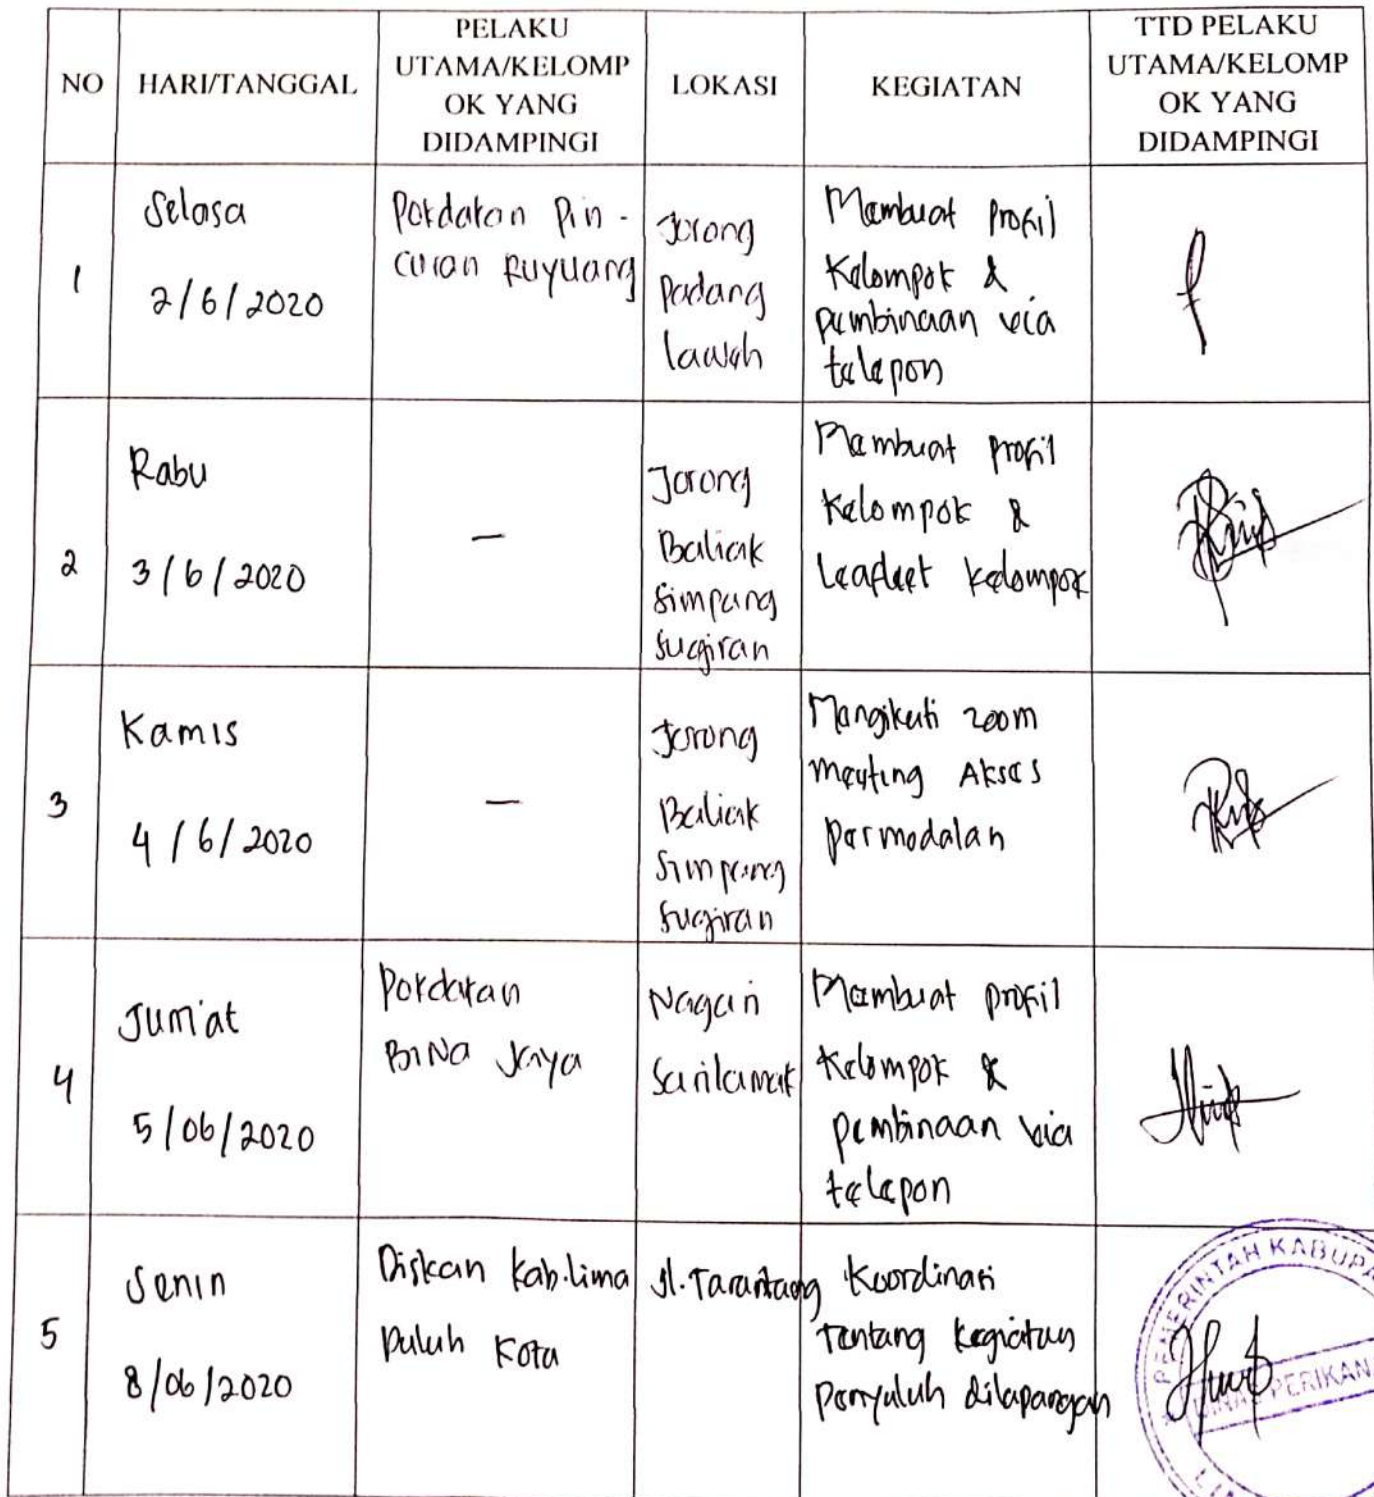 NO
HARI/TANGGAL
PELAKU
UTAMA/KELOMP
OK YANG
DIDAMPINGI
LOKASI
KEGIATAN
TTD PELAKU
UTAMA/KELOMP
OK YANG
DIDAMPINGI
1
Selasa
2/6/2020
Pokdakan Pin -
curan Ruyuang
Jorong
Padang
Lawah
Membuat Profil
Kelompok &
pembinaan via
telepon
2
Rabu
3/6/2020
—
Jorong
Baliak
Simpang
Sugiran
Membuat profil
Kelompok &
Leafleet kelompok
3
Kamis
4/6/2020
—
Jorong
Baliak
Simpang
Sugiran
Mengikuti zoom
meeting Akses
permodalan
4
Jum'at
5/06/2020
Pokdakan
BINa Jaya
Nagari
Sarilamak
Membuat profil
Kelompok &
pembinaan via
telepon
5
Senin
8/06/2020
Diskan Kab.lima
Puluh Kota
Jl. Tarantang
Koordinasi
Tentang kegiatan
penyuluh dilapangan
PEMERINTAH KABUPA
DINAS PERIKAN